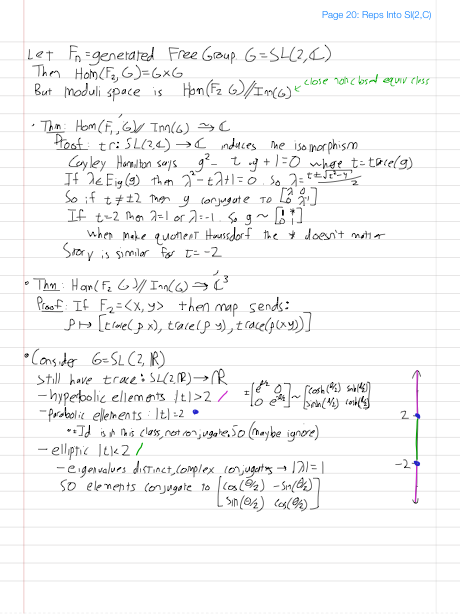 Page 20: Reps Into Sl(2,C)
Let Fn = generated Free Group G = SL(2,ℂ)
Then Hom(F₂,G) = G×G
But moduli space is Hom(F₂ G)//Inn(G) close non closed equiv class
• Thm: Hom(F₁,G)// Inn(G) ≃→ ℂ
Proof: tr: SL(2,ℂ) → ℂ induces the isomorphism
Cayley Hamilton says g² - t g + 1 = 0 where t = trace(g)
If λ ∈ Eig(g) then λ² - tλ + 1 = 0. So λ = (t ± √(t²-4))/2
So if t ≠ ±2 then g conjugate to [λ 0; 0 λ⁻¹]
If t = 2 then λ = 1 or λ = -1. So g ~ [1 *; 0 1]
When make quotient Haussdorf the * doesn't matter
Story is similar for t = -2
• Thm: Hom(F₂ G)// Inn(G) ≃→ ℂ³
Proof: If F₂ = <X, Y> then map sends:
ρ ↦ [trace(ρ x), trace(ρ y), trace(ρ(xy))]
• Consider G = SL(2, ℝ)
Still have trace: SL(2,ℝ) → ℝ
- hyperbolic ellements |t| > 2 / = [e^(ℓ/2) 0; 0 e^(-ℓ/2)] ~ [cosh(ℓ/2) sinh(ℓ/2); sinh(ℓ/2) cosh(ℓ/2)]
- parabolic ellements: |t| = 2 •
Id is in this class, not conjugate, so (maybe ignore)
- elliptic |t| < 2 /
- eigenvalues distinct, complex conjugates → |λ| = 1
SO elements conjugate to [cos(θ/2) -sin(θ/2); sin(θ/2) cos(θ/2)]
2
-2